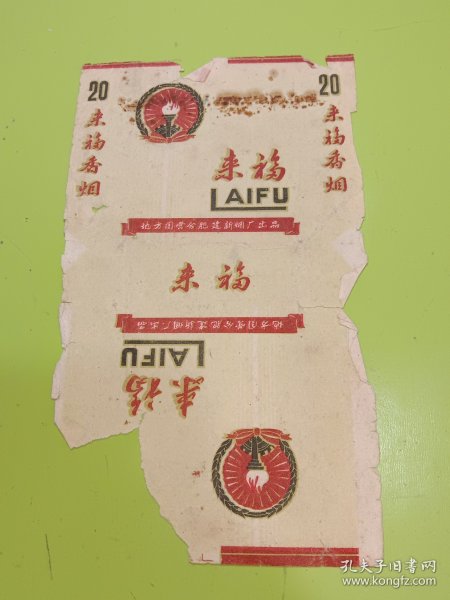 20
来福香烟
20
来福香烟
来福
LAIFU
地方国营合肥建新烟厂出品
来福
地方国营合肥建新烟厂出品
LAIFU
来福
孔夫子旧书网
www.kongfz.com